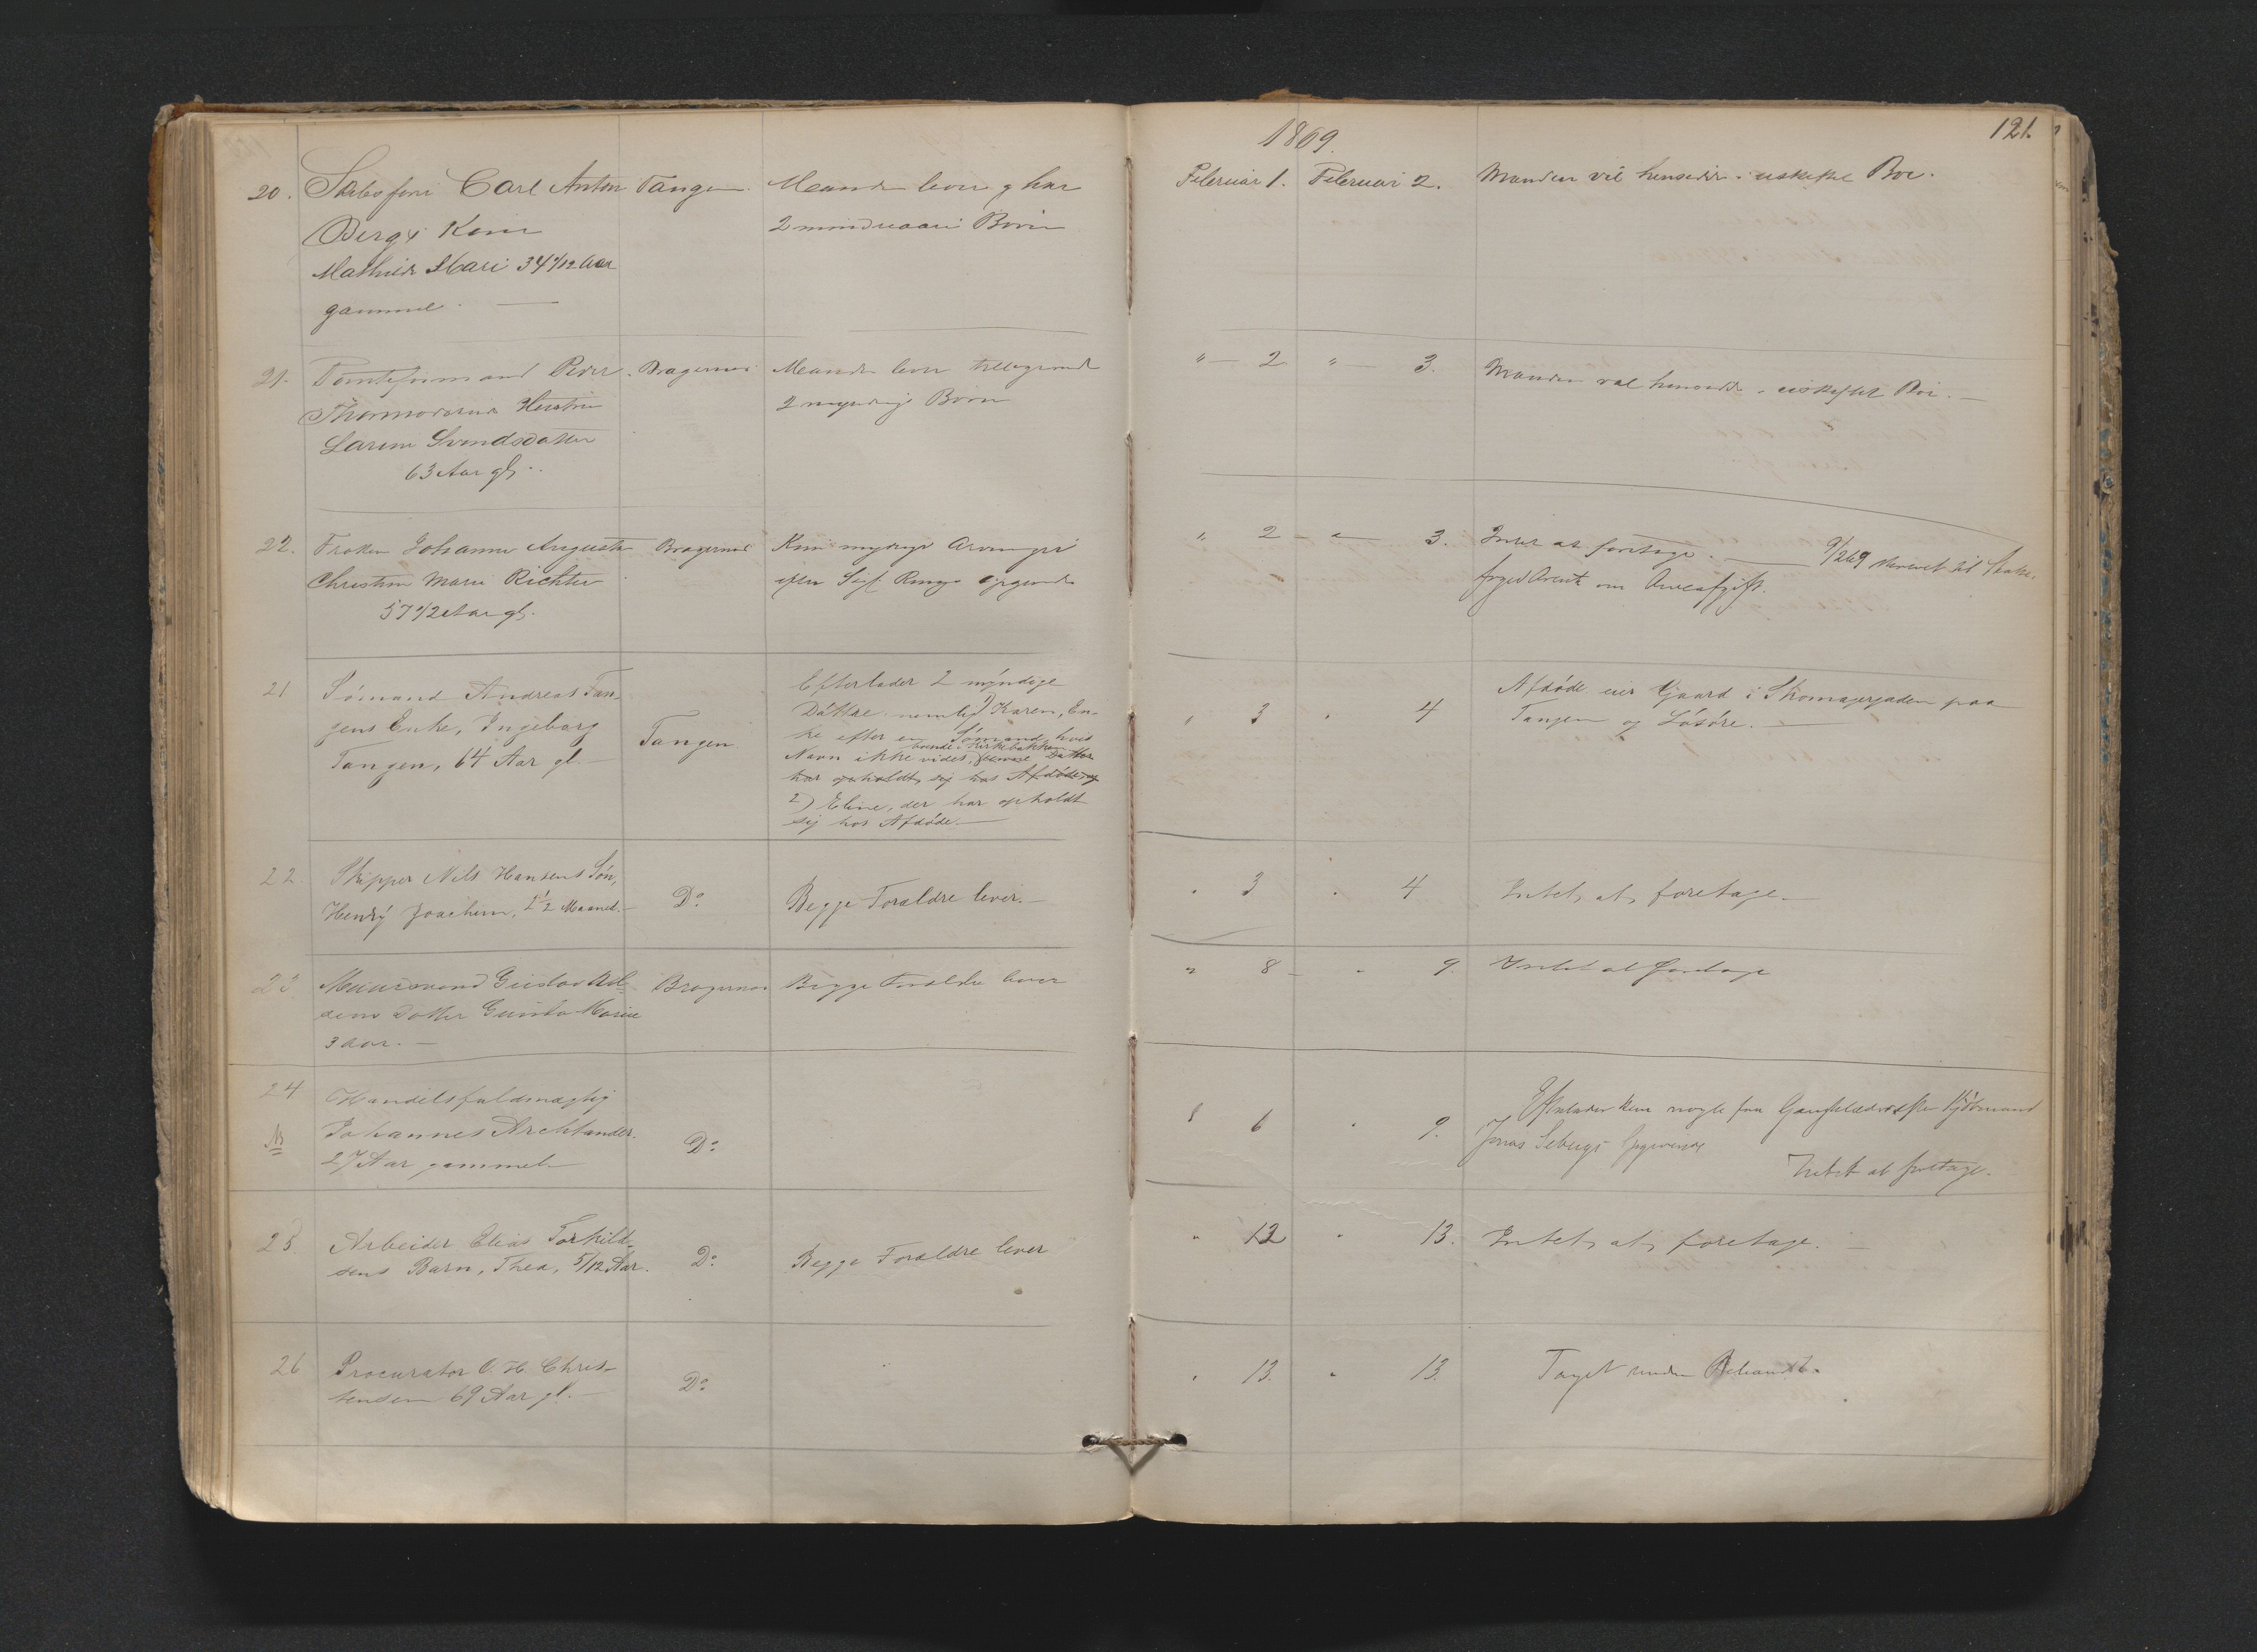 1869.
121.
20. Skibsfører Carl Anton Tangen Manden lever og har Februar 1. Februar 2. Manden vil hensidde i uskiftet Boe.
Bergs Kone 2 mindreaari Børn
Mathilde Mari 34 1/12 Aar
gammel.
21. Tomteformand Peder Bragernes Manden lever tilligemed " 2 " 3. Manden vil hensidde i uskiftet Boe.
Thormodsens Hustru 2 myndige Børn
Larine Svendsdatter
63 Aar gl.
22. Frøken Johanne Augusta Bragernes Kun myndige Arvinger " 2 " 3. Intet at foretage. 9/2 69 skrevet til
Christine Marie Richter efter Opgivende om Arveafgift.
57 1/2 Aar gl.
21 Sømand Andreas Tan- Tangen Efterlader 2 myndige " 3 " 4 Afdøde eier Gaard i Skomagergaden paa
gens Enke, Ingeborg Døttre nemlig 1) Karen, En- Tangen og Løsøre.
Tangen, 64 Aar gl. ke efter en Sømand, hvis
Navn ikke vides, boende i Kirkebakken Datter
har opholdt sig hos Afdøde, og
2) Eline, der har opholdt
sig hos Afdøde.
22 Skipper Nils Hansens Søn, Do Begge Forældre lever. " 3 " 4 Intet at foretage.
Henrÿ Joachim, 2 1/2 Maaned.
23 Muurmand Gustav Bragernes Begge Forældre lever " 8 " 9. Intet at foretage
sens Datter Gusta Marie
3 Aar.
24 Handelsfuldmægtig Do " 6 " 9. Efterlader kun nogle faa Gangklæder efter Kjøbmand
Johannes Archtander. Jonas Opgivende
27 Aar gammel Intet at foretage.
25. Arbeider Elias Torkild- Do Begge Forældre lever " 12 " 13. Intet at foretage.
sens Barn, Thea, 5/12 Aar.
26 Procurator O. H. Chris- Do " 13. " 13. Taget under Behandl.
tensen 69 Aar gl.